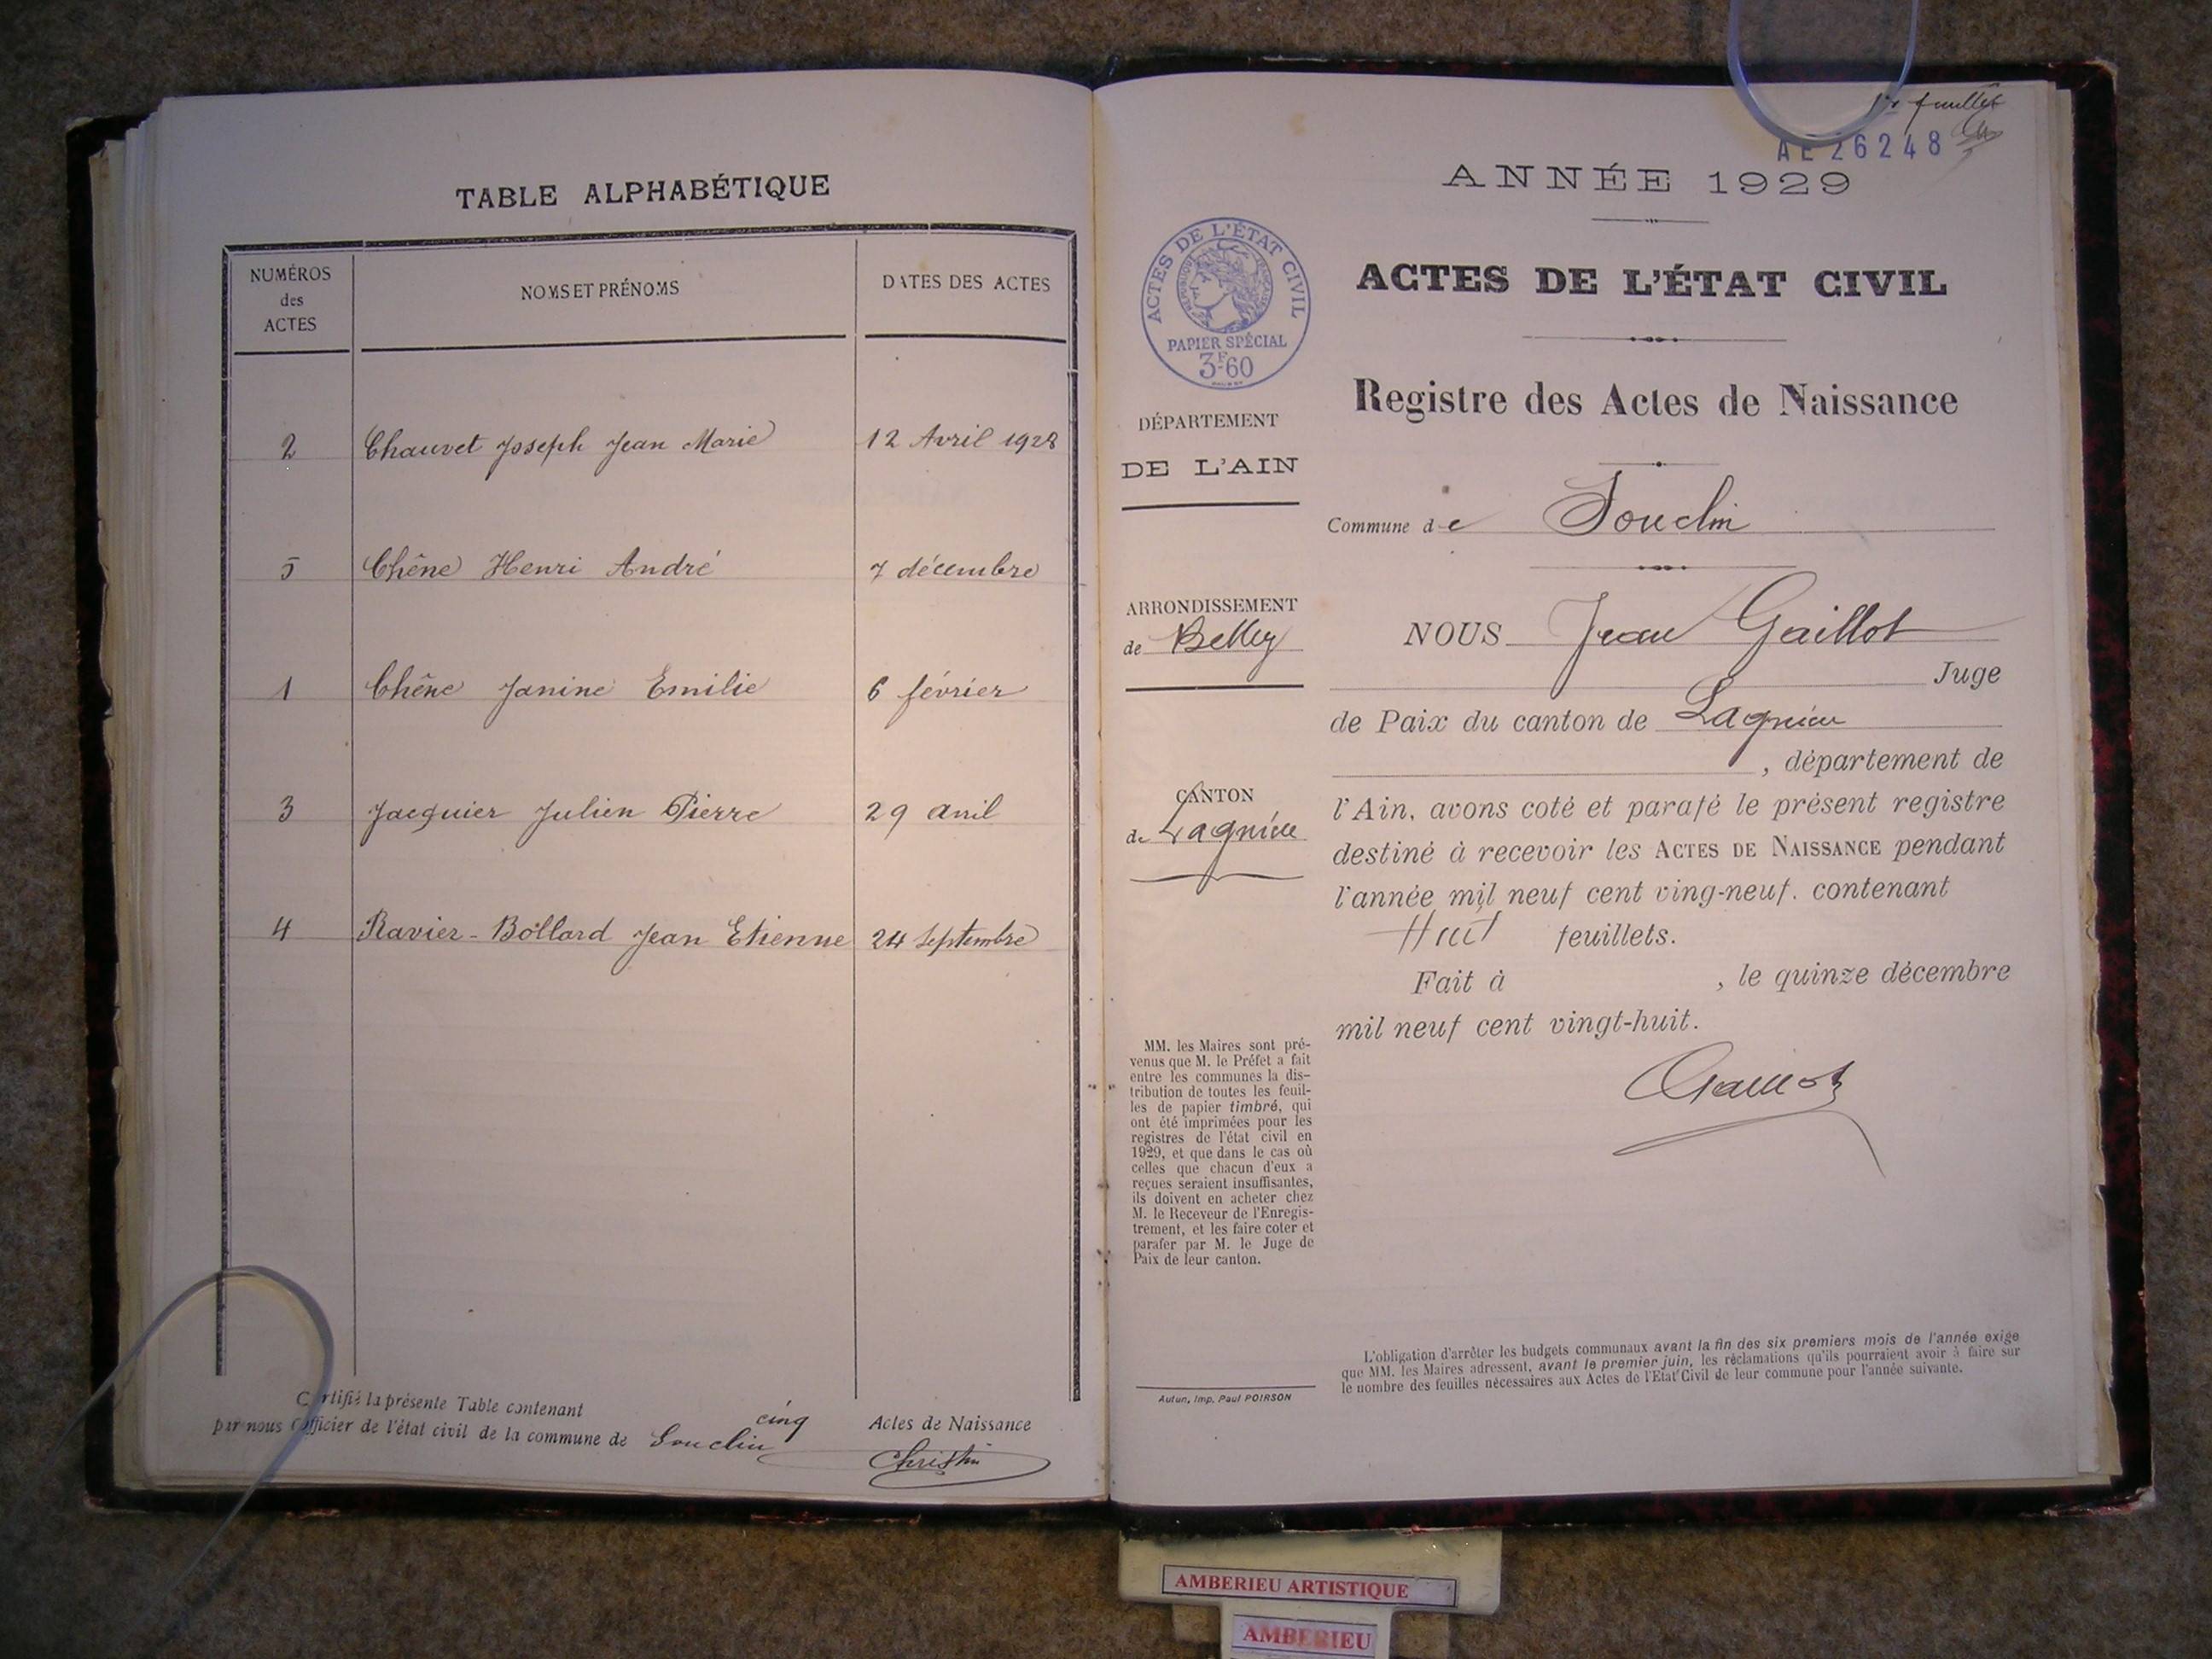 TABLE ALPHABÉTIQUE
NUMÉROS
des
ACTES
NOMS ET PRÉNOMS
DATES DES ACTES
2 Chauvet Joseph Jean Marie 12 Avril 1928
5 Chêne Henri André 7 décembre
1 Chêne Janine Emilie 6 février
3 Jacquier Julien Pierre 29 avril
4 Ravier-Bollard Jean Etienne 24 septembre
Certifié la présente Table contenant cinq Actes de Naissance
par nous Officier de l'état civil de la commune de Souclin
Christin
1er feuillet
AE 26248
ANNÉE 1929
ACTES DE L'ÉTAT CIVIL
RÉPUBLIQUE FRANÇAISE
PAPIER SPÉCIAL
3F.60
ACTES DE L'ÉTAT CIVIL
Registre des Actes de Naissance
DÉPARTEMENT
DE L'AIN
Commune de Souclin
ARRONDISSEMENT
de Belley
NOUS Jean Gaillot
Juge
de Paix du canton de Lagnieu
, département de
CANTON
de Lagnieu
l'Ain, avons coté et parafé le présent registre
destiné à recevoir les ACTES DE NAISSANCE pendant
l'année mil neuf cent ving-neuf. contenant
Huit feuillets.
Fait à , le quinze décembre
mil neuf cent vingt-huit.
Gaillot
MM. les Maires sont pré-
venus que M. le Préfet a fait
entre les communes la dis-
tribution de toutes les feuil-
les de papier timbré, qui
ont été imprimées pour les
registres de l'état civil en
1929, et que dans le cas où
celles que chacun d'eux a
reçues seraient insuffisantes,
ils doivent en acheter chez
M. le Receveur de l'Enregis-
trement, et les faire coter et
parafer par M. le Juge de
Paix de leur canton.
Autun, Imp. Paul POIRSON
L'obligation d'arrêter les budgets communaux avant la fin des six premiers mois de l'année exige
que MM. les Maires adressent, avant le premier juin, les réclamations qu'ils pourraient avoir à faire sur
le nombre des feuilles nécessaires aux Actes de l'Etat Civil de leur commune pour l'année suivante.
AMBERIEU ARTISTIQUE
AMBERIEU